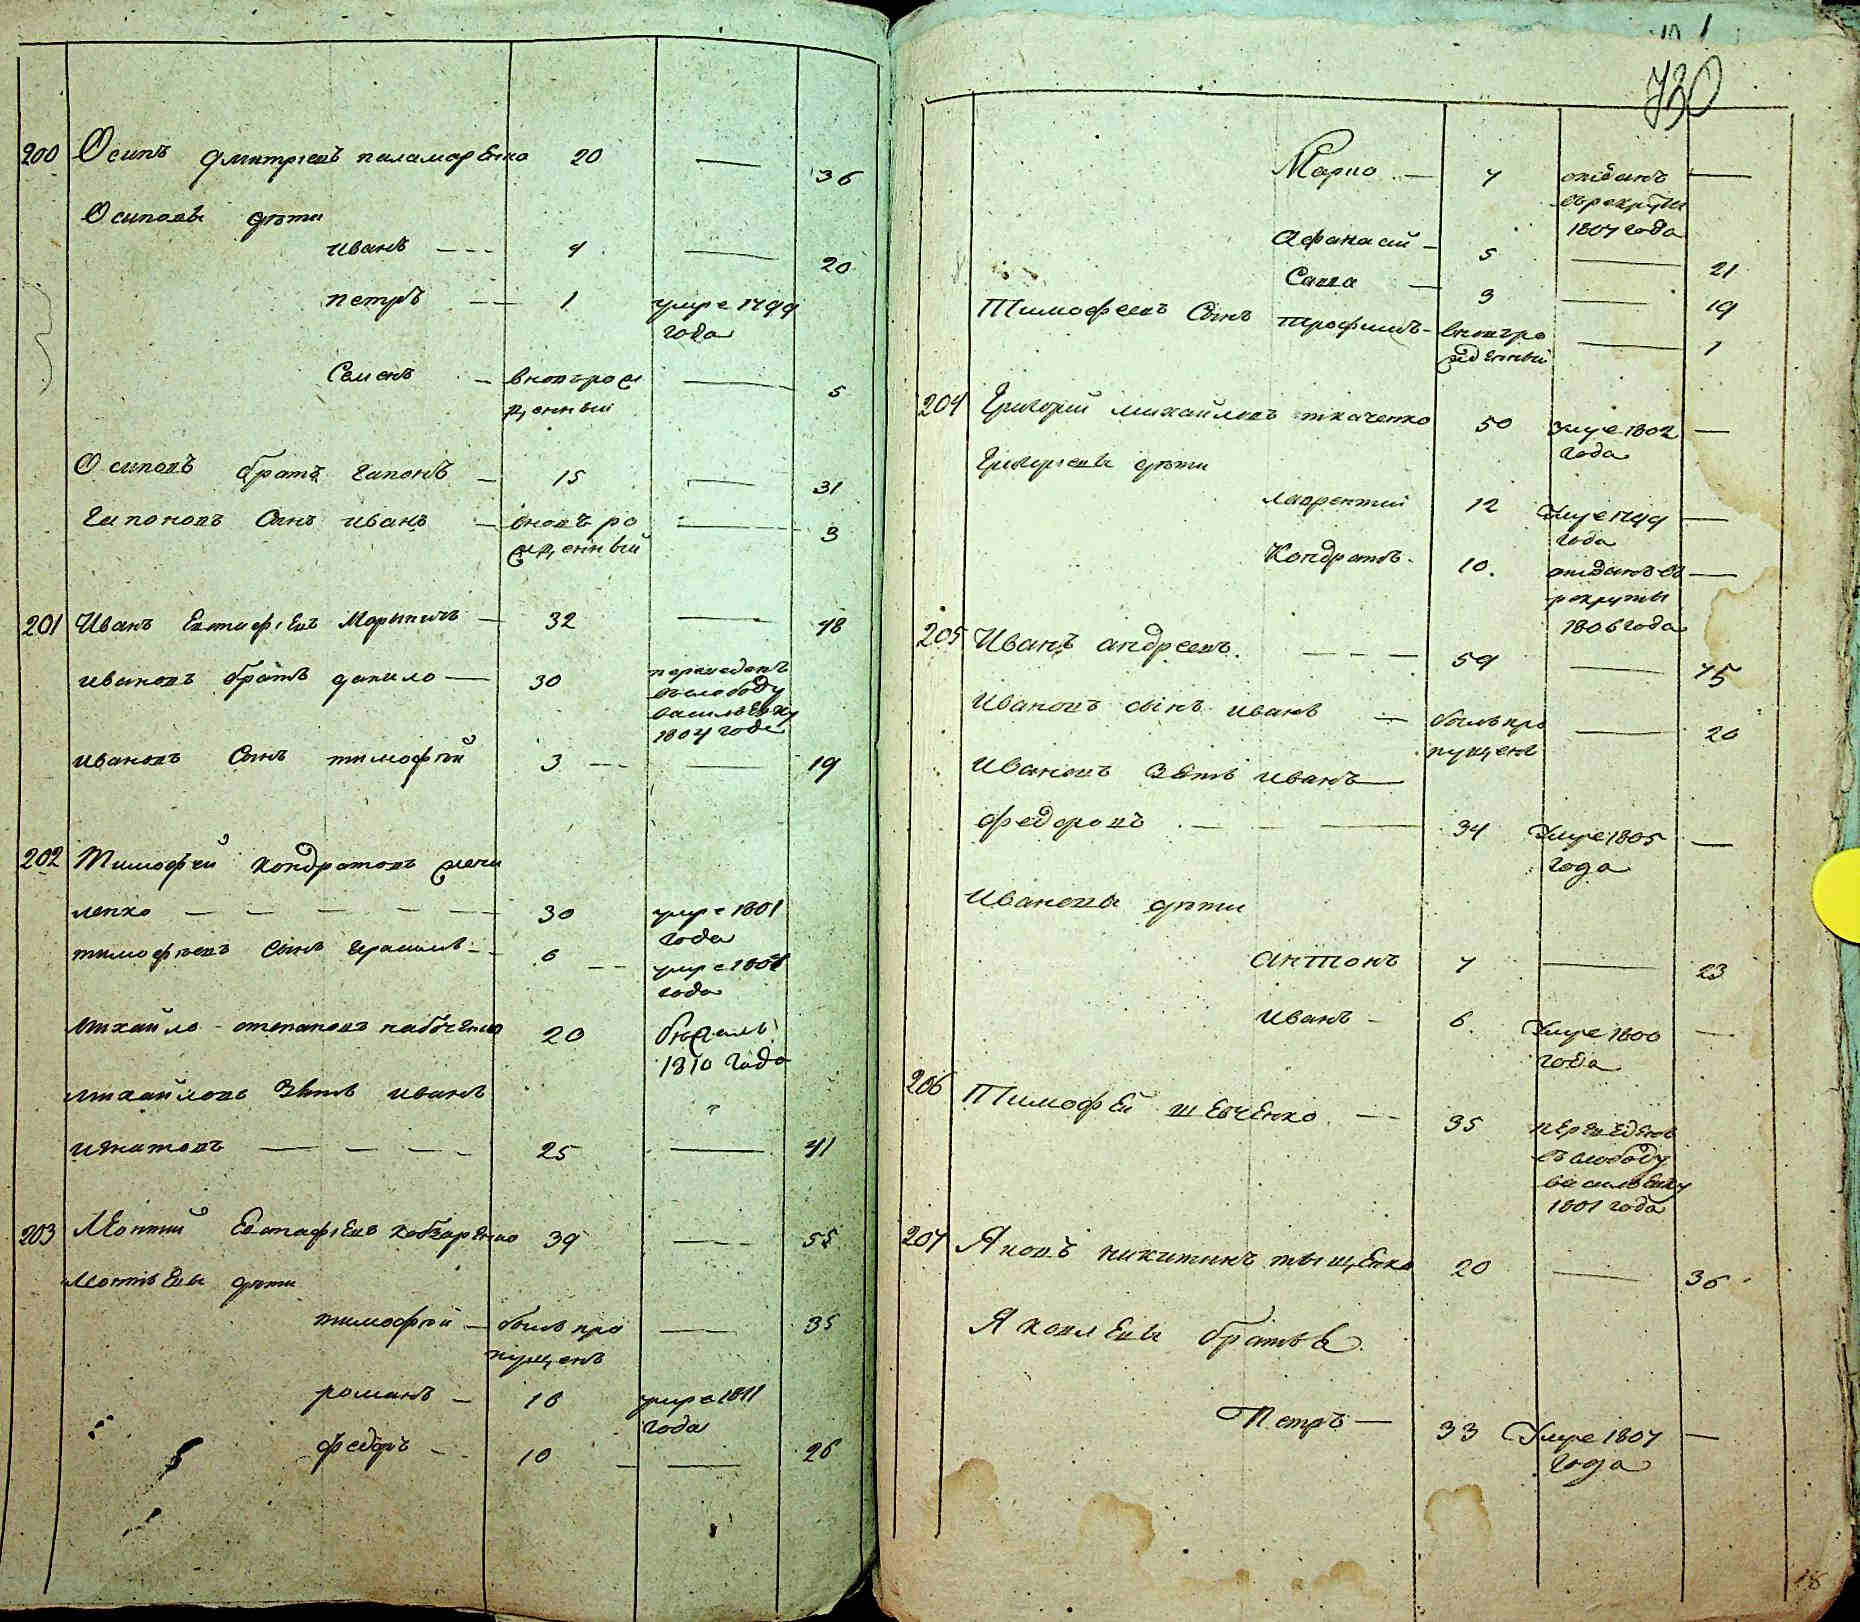 200 Осипъ Дмитріевъ паламаренко 20 — 36
Осиповы дѣти
иванъ - - - 4 — 20
петръ — 1 умре 1799
года
Семенъ - вновьрож
денный — 5
Осиповъ братъ гапонъ - 15 — 31
Гапоновъ Сынъ иванъ - вновь ро
жденный — 3
201 Иванъ Евтафіевъ — 32 — 48
ивановъ братъ данило — 30 переведенъ
въ слободу
васильевку
1804 года
ивановъ Сынъ тимофѣй 3 — — 19
202 Тимофѣй Кондратовъ
ленко — — — — — 30 умре 1801
года
тимофѣевъ Сынъ герасимъ - - 6 — умре
года
михайло степановъ 20 бѣжалъ
1810 года
михайловъ Зять иванъ
игнатовъ — — — - 25 — 41
203 Евтафіевъ кобзаренко 39 — 55
дѣти
тимофѣй — былъ про
пущенъ — 35
романъ — 16 умре 1811
года
федоръ - 10 — — 26
730
Марко — 7 отданъ —
въ рекруты
1807 года
афанасий - 5 — 21
Сава — 3 — 19
Тимофеевъ Сынъ трофимъ - вновьро
жденный — 1
204 Григорий михайловъ ткаченко 50 Умре 1802 —
года
Григорьевы дѣти
лаврентий 12 Умре 1799 —
года
Кондратъ. 10. отданъ въ —
рекруты
1806 года
205 Иванъ андреевъ. - — — 59 — 75
Ивановъ сынъ иванъ — былъ про
пущенъ — 20
Ивановъ Зять иванъ —
федоровъ — — — 34 Умре 1805 —
года
Ивановы дѣти
антонъ 7 — 23
иванъ - 6. Умре 1800 —
года
206 Тимофѣй шевченко — 35 переведенъ
въ слободу
васильевку
1801 года
207 Яковъ никитинъ тыщенко 20 — 36
Яковлевы братья
Петръ — 33 Умре 1807 —
года